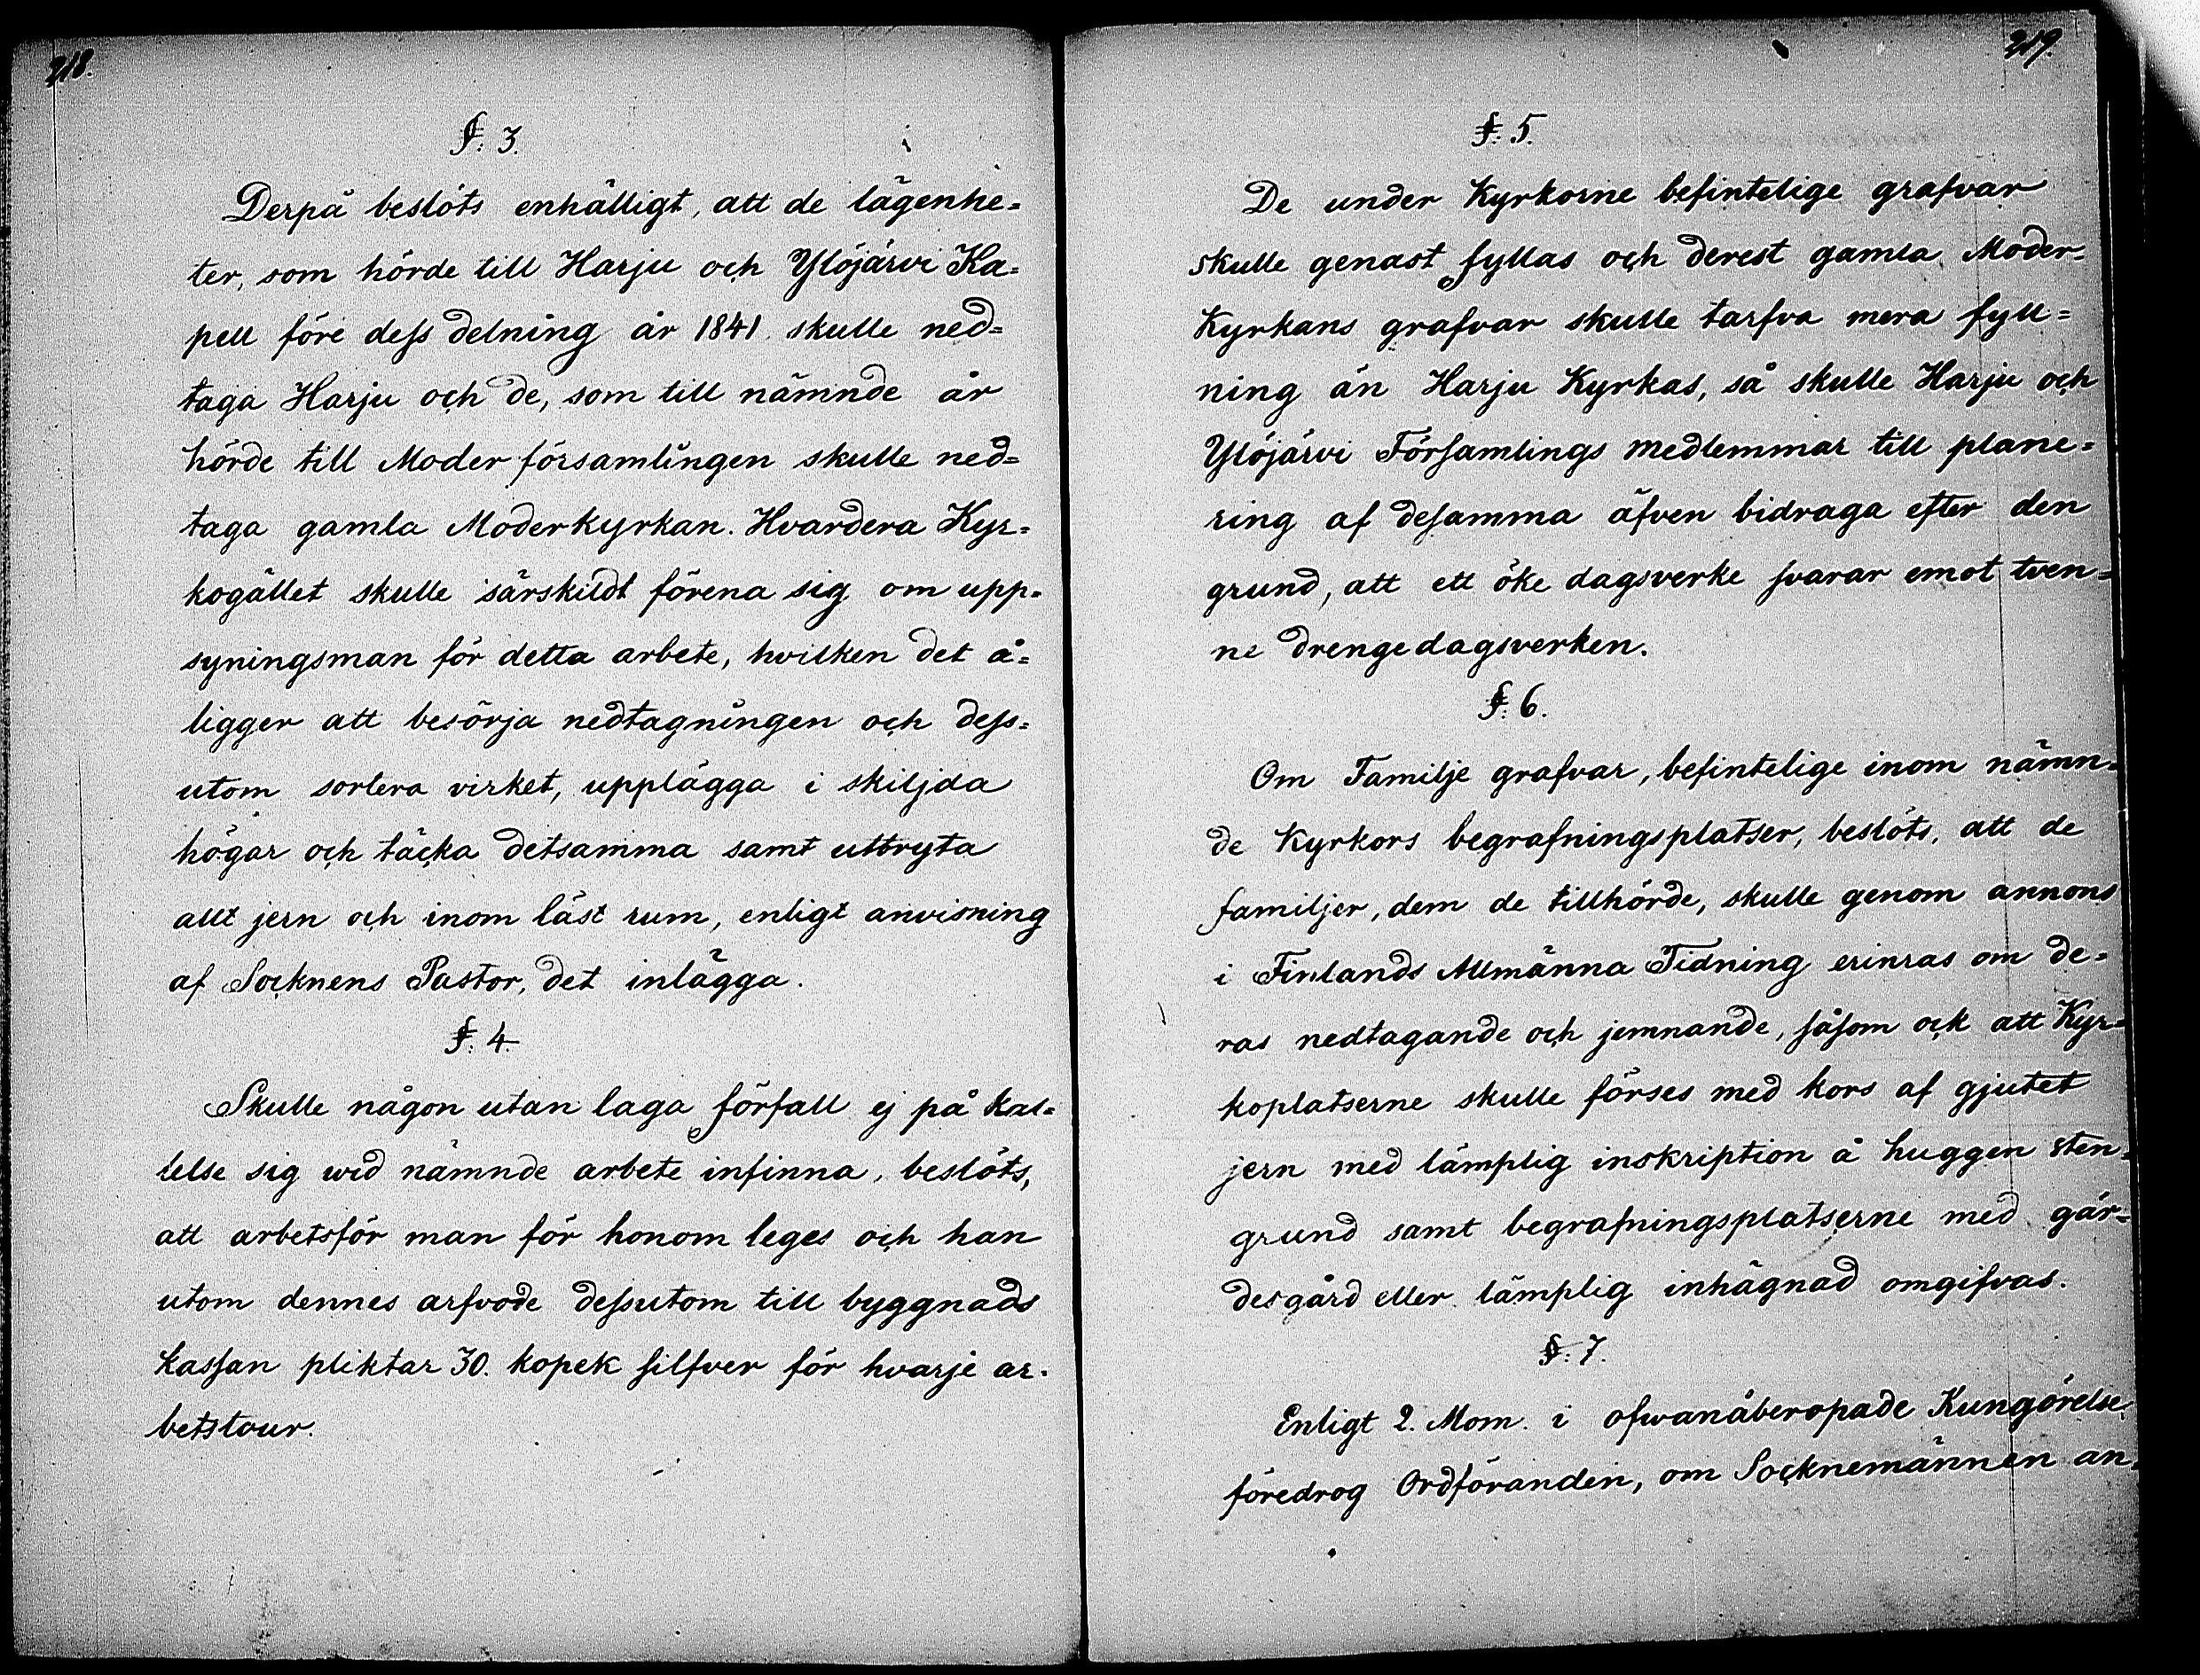 218.
§. 3.
Derpå beslöts enhälligt, att de lägenhe=
ter, som hörde till Harju och Ylöjärvi Ka=
pell före dess delning år 1841. skulle ned=
taga Harju och de, som till nämnde år
hörde till Moder församlingen skulle ned=
taga gamla Moderkyrkan. Hvardera Kyr=
kogället skulle särskildt förena sig om upp=
syningsman för detta arbete, hvilken det å=
ligger att besörja nedtagningen och dess=
utom sortera virket, upplägga i skiljda
högar och täcka detsamma samt uttryta
allt jern och inom läst rum, enligt anvisning
af Socknens Pastor, det inlägga.
§. 4.
Skulle någon utan laga förfall ej på kal=
lelse sig wid nämnde arbete infinna, beslöts,
att arbetsför man för honom leges och han
utom dennes arfvode dessutom till byggnads
kassan pliktar 30. kopek silfver för hvarje ar=
betstour.
219.
§. 5.
De under Kyrkorne befintelige grafvar
skulle genast fyllas och derest gamla Moder=
Kyrkans grafvar skulle tarfva mera fyll=
ning än Harju Kyrkas, så skulle Harju och
Ylöjärvi Församlings medlemmar till plane=
ring af desamma äfven bidraga efter den
grund, att ett öke dagsverke svarar emot tven=
ne drengedagsverken.
§. 6.
Om Familje grafvar, befintelige inom nämn=
de Kyrkors begrafningsplatser, beslöts, att de
familjer, dem de tillhörde, skulle genom annons
i Finlands Allmänna Tidning erinras om de=
ras nedtagande och jemnande, såsom ock att Kyr=
koplatserne skulle förses med kors af gjutet
jern med lämplig inskription å huggen sten=
grund samt begrafningsplatserne med gär=
desgård eller lämplig inhägnad omgifvas.
§. 7.
Enligt 2. Mom. i ofwanåberopade Kungörelse
föredrog Ordföranden, om Socknemännen an=